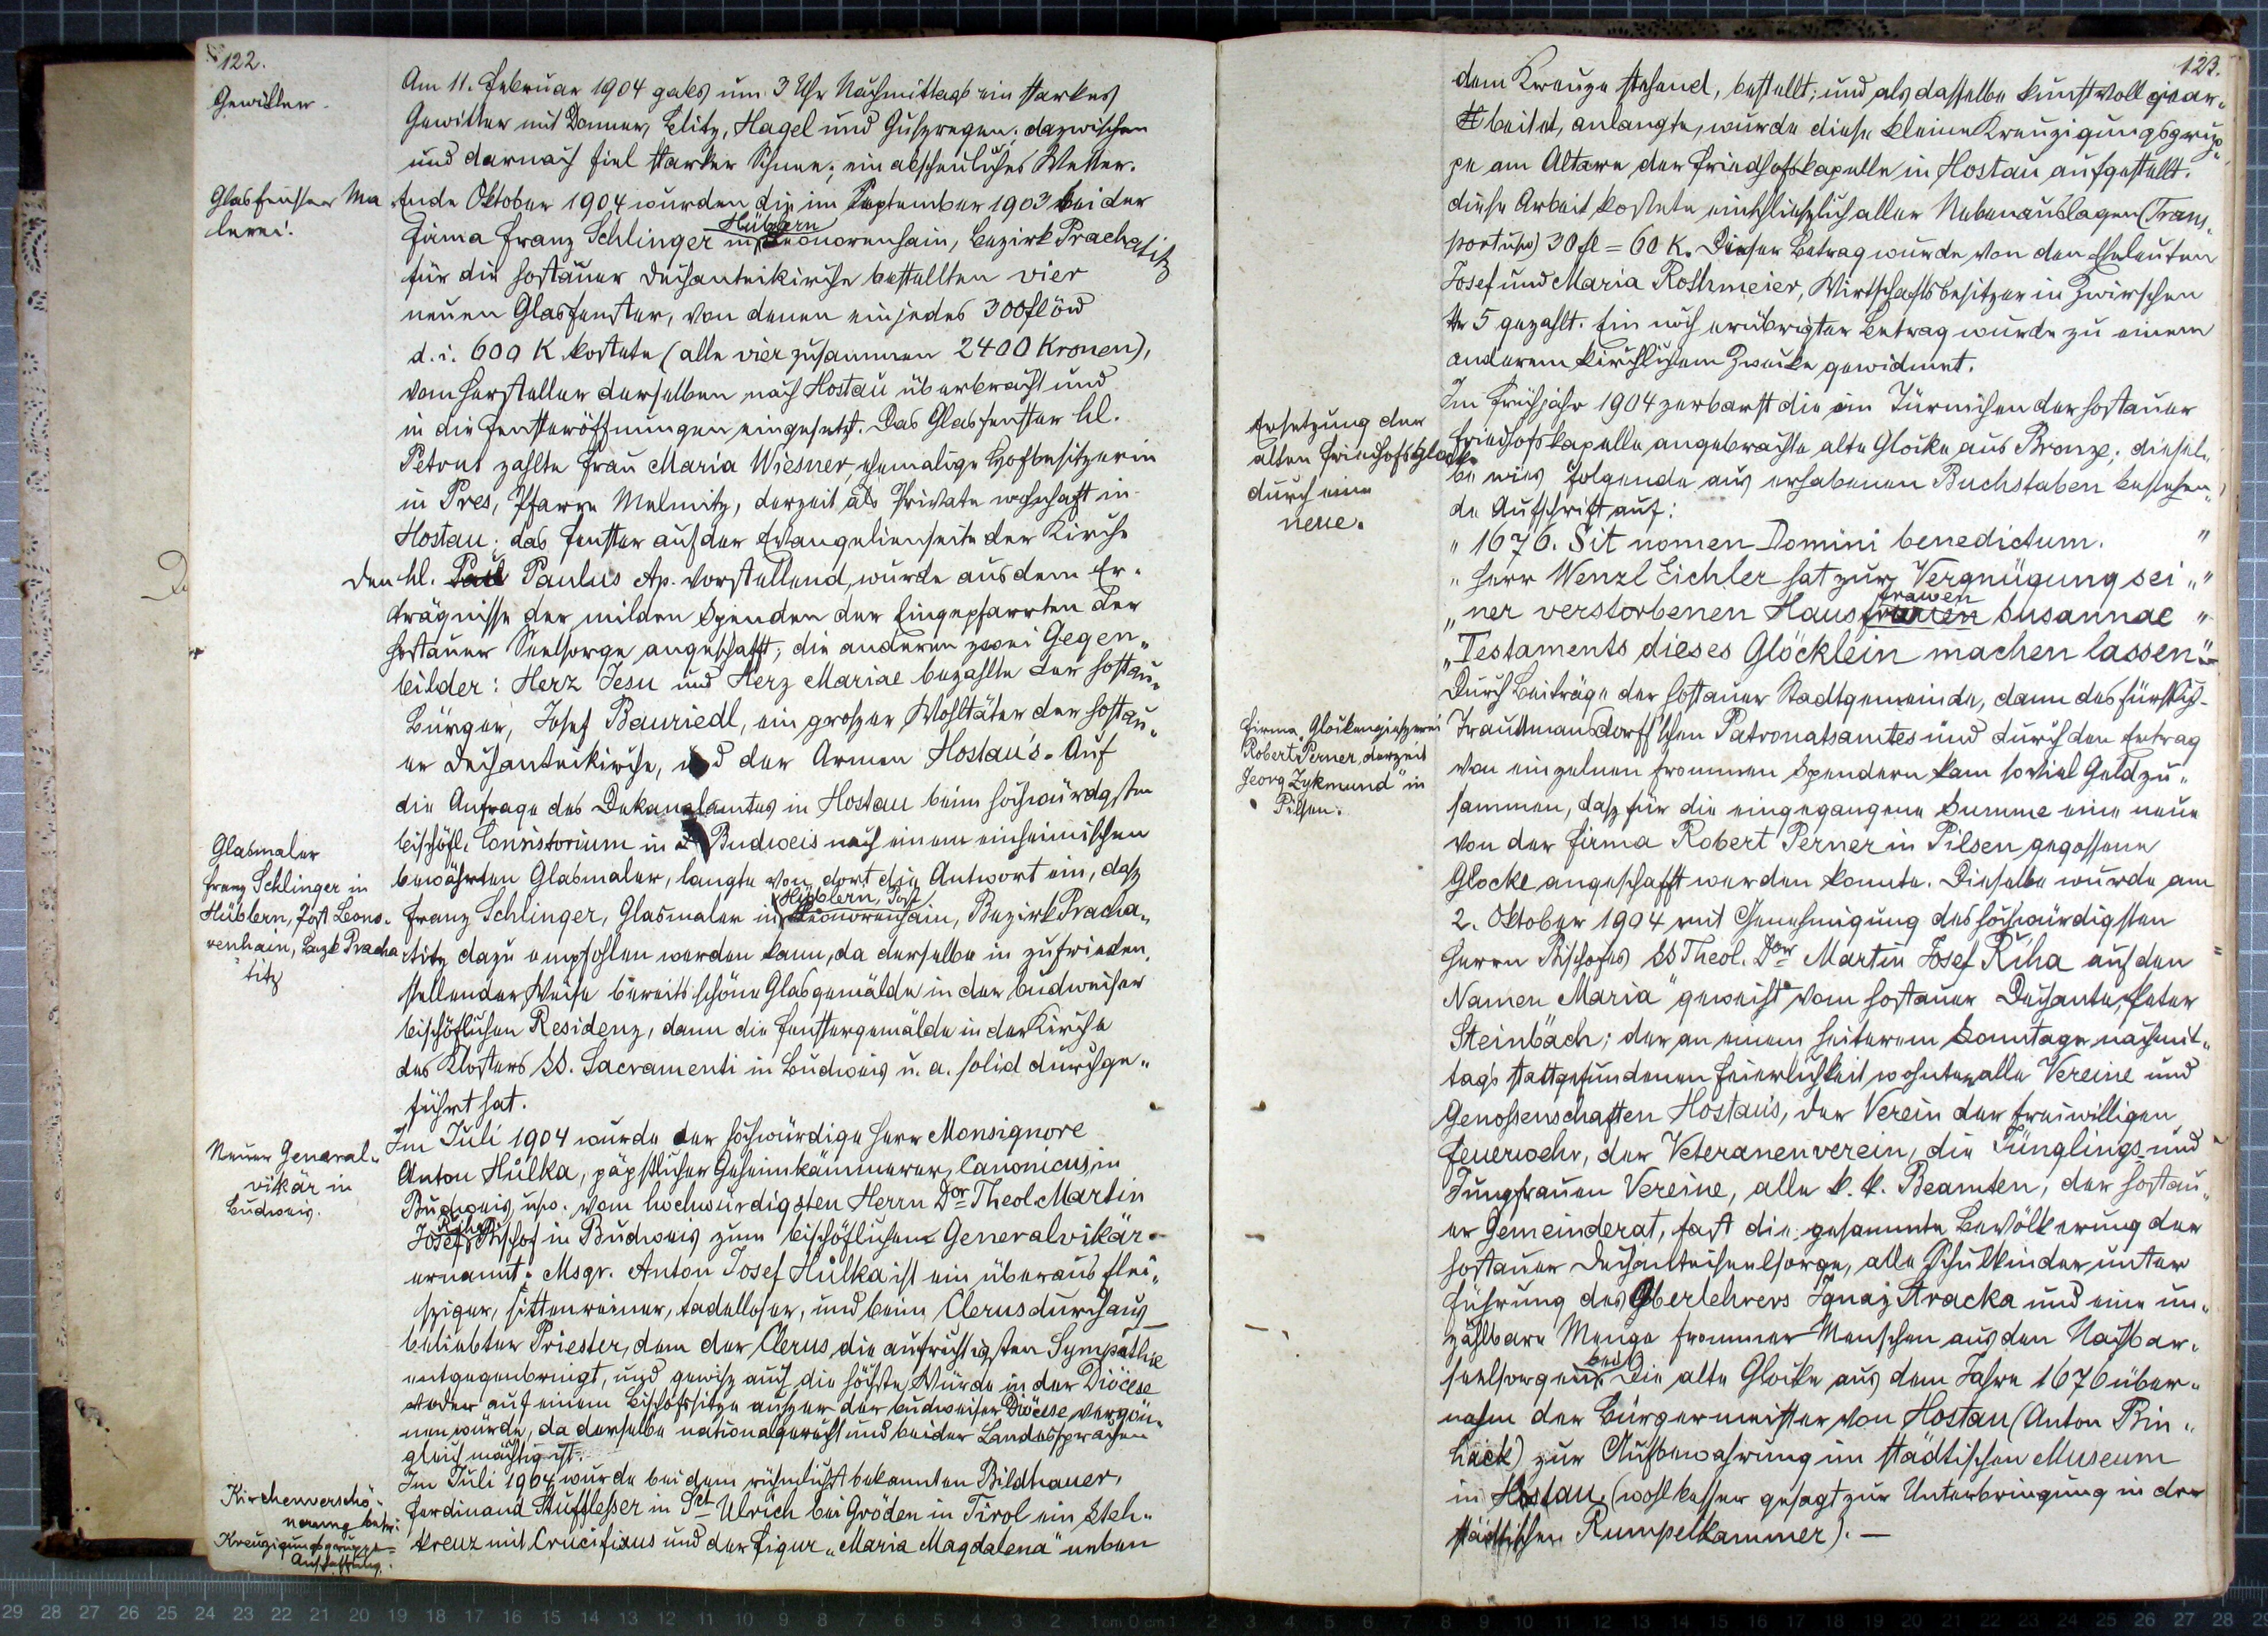 122.
Gewitter.
Am 11. Februar 1904 gabs um 3 Uhr Nachmittags ein starkes
Gewitter mit Donner, Blitz, Hagel und Guszregen; dazwischen
und darnach fiel starker Schnee; ein abscheuliches Wetter.
Glasfenster Ma
lerei.
Ende Oktober 1904 wurden die im September 1903 bei der
Firma Franz Schlinger in Hüblern Leonorenhain, Bezirk Prachatitz
für die hostauer Dechanteikirche bestellten vier
neuen Glasfenster, von denen ein jedes 300 fl öW
d. i. 600 K kostete (alle vier zusammen 2400 Kronen),
vom Hersteller derselben nach Hostau überbracht und
in die Fensteröffnungen eingesetzt. Das Glasfenster hl.
Petrus zahlte Frau Maria Wiesner, ehemalige Hofbesitzerin
in Pres, Pfarre Melmitz, derzeit als Private wohnhaft in
Hostau; das Fenster auf der Evangelienseite der Kirche
den hl. Paul Paulus Ap. vorstellend, wurde aus dem Er-
trägnisse der milden Spenden der Eingepfarrten der
hostauer Seelsorge angeschafft; die anderen zwei Gegen„
bilder: Herz Jesu und Herz Mariae bezahlte der hostau„
Bürger, Josef Bauriedl, ein groszer Wohltäter der hostau„
er Dechanteikirche, und der Armen Hostau's. Auf
die Anfrage des Dekanalamtes in Hostau beim hochwürdgsten
bischöfl. Consistorium in Budweis nach einem einheimischen
Glasmaler
Franz Schlinger in
Hüblern, Post Leono-
renhain, Bezk Pracha
titz
bewährten Glasmaler, langte von dort die Antwort ein, dasz
Franz Schlinger, Glasmaler in Hüblern, Post Leonorenhain, Bezirk Pracha„
titz dazu empfohlen werden kann, da derselbe in zufrieden„
stellender Weise bereits schöne Glasgemälde in der budweiser
bischöflichen Residenz, dann die Fenstergemälde in der Kirche
des Klosters SS. Sacramenti in Budweis u. a. solid durchge„
führt hat.
Neuer General„
vikär in
Budweis.
Im Juli 1904 wurde der hochwürdige Herr Monsignore
Anton Hůlka, päpstlicher Geheimkämmerer, Canonicus, in
Budweis usw. vom hochwürdigsten Herrn Dor Theol Martin
Josef Říha Bischof in Budweis zum bischöflichen Generalvikär
ernannt. Msgr. Anton Josef Hůlka ist ein überaus flei„
sziger, sittenreiner, tadelloser, und beim Clerus durchaus
beliebter Priester, dem der Clerus die aufrichtigsten Sympathie
entgegenbringt, und gewisz auch die höchste Würde in der Diöcese
oder auf einem Bischofssitze auszer der budweiser Diöcese vergön„
nen würde, da derselbe nationalgerecht und beider Landessprachen
gleich mächtig ist.
Kirchenverschö„
nerung betr:
Kreuzigungsgruppe=
Anschaffung.
Im Juli 1904 wurde bei dem rühmlichst bekannten Bildhauer,
Ferdinand Stufflesser in Sct Ulrich bei Gröden in Tirol ein Steh„
kreuz mit Crucifixus und der Figur „Maria Magdalena" neben
123.
dem Kreuze stehend, bestellt; und als dasselbe kunstvoll gear„
beitet, anlangte, wurde diese kleine Kreuzigungsgrup„
pe am Altare der Friedhofskapelle in Hostau aufgestellt.
diese Arbeit kostete einschlieszlich aller Nebenauslagen (Trans„
port usw) 30 fl = 60 K. Dieser Betrag wurde von den Eheleuten
Josef und Maria Rothmeier, Wirtschaftsbesitzer in Zwirschen
Nr 5 gezahlt. Ein noch erübrigter Betrag wurde zu einem
anderem kirchlichem Zwecke gewidmet.
Ersetzung der
alten Friedhofsglocke
durch eine
neue.
Im Frühjahr 1904 zerbarst die im Türmchen der hostauer
Friedhofskapelle angebrachte alte Glocke aus Bronze; diesel„
be wies folgende aus erhabenen Buchstaben bestehen„
de Aufschrift auf:
„ 1676. Sit nomen Domini benedictum. "
„ Herr Wenzl Eichler hat zur Vergnügung sei „"
„ner verstorbenen Hausfrawen Susannae "
„Testaments dieses Glöcklein machen lassen"
Durch Beiträge der hostauer Stadtgemeinde, dann des fürstlich
Firma „Glockengieszerei
Robert Perner, derzeit
Georg Zykmund" in
Pilsen.
Trauttmansdorff'schen Patronatsamtes und durch den Ertrag
von einzelnen frommen Spendern kam soviel Geld zu„
sammen, dasz für die eingegangene Summe eine neue
von der Firma Robert Perner in Pilsen gegossene
Glocke angeschafft werden konnte. Dieselbe wurde am
2. Oktober 1904 mit Genehmigung des hochwürdigsten
Herrn Bischofes SS Theol. Dor Martin Josef Říha auf den
Namen „Maria" geweiht vom hostauer Dechante, Peter
Steinbach; der an einem heiterem Sonntage nachmit„
tags stattgefundenen Feierlichkeit wohnten alle Vereine und
Genossenschaften Hostaus, der Verein der freiwilligen
Feuerwehr, der Veteranenverein, die Jünglings und
Jungfrauen Vereine, alle k. k. Beamten, der hostau„
er Gemeinderat, fast die gesammte Bevölkerung der
hostauer Dechanteiseelsorge, alle Schulkinder unter
Führung des Oberlehrers Ignaz Stracka und eine un„
zählbare Menge frommer Menschen aus den Nachbar„
seelsorgen bei. Die alte Glocke aus dem Jahre 1676 über„
nahm der Bürgermeister von Hostau (Anton Bin„
hack) zur Aufbewahrung im städtischen Museum
in Hostau, (wohl besser gesagt zur Unterbringung in der
städtischen Rumpelkammer). —